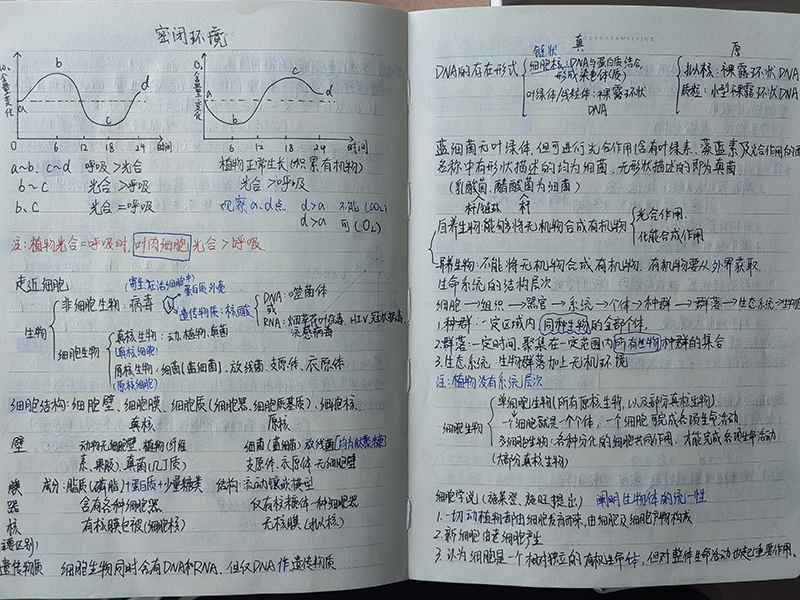 密闭环境
CO₂含量变化 a b c d 0 6 12 18 24 时间
O₂含量变化 a b c d 0 6 12 18 24 时间
a~b、c~d 呼吸>光合 植物正常生长(积累有机物)
b~c 光合>呼吸 光合>呼吸
b、c 光合=呼吸 观察a、d点 d>a 不能(CO₂)
d>a 可(O₂)
注:植物光合=呼吸时,叶肉细胞光合>呼吸
走近细胞 (寄生在活细胞中)
蛋白质外壳
生物
非细胞生物:病毒
遗传物质:核酸
DNA:噬菌体
或
RNA:烟草花叶病毒、HIV、冠状病毒、
流感病毒
细胞生物
真核生物:动、植物、真菌
(真核细胞)
原核生物:细菌[蓝细菌]、放线菌、支原体、衣原体
(原核细胞)
细胞结构:细胞壁、细胞膜、细胞质(细胞器、细胞质基质)、细胞核
真核 原核
壁 动物无细胞壁,植物(纤维 细菌(蓝细菌)、放线菌
素、果胶),真菌(几丁质) 支原体、衣原体无细胞壁
膜 成分:脂质(磷脂)+蛋白质+少量糖类 结构:流动镶嵌模型
器 含有各种细胞器 仅有核糖体一种细胞器
核 有核膜包被(细胞核) 无核膜(拟核)
主要区别)
遗传物质 细胞生物同时含有DNA和RNA、但仅DNA作遗传物质
真 原
链状
DNA的存在形式
细胞核:DNA与蛋白质结合,
形成染色体(质)
叶绿体/线粒体:裸露环状
DNA
拟核:裸露环状DNA
质粒:小型裸露环状DNA
蓝细菌无叶绿体,但可进行光合作用(含有叶绿素、藻蓝素及光合作用的酶
名称中有形状描述的均为细菌、无形状描述的即为真菌
(乳酸菌、醋酸菌为细菌)
杆/链球 杆
自养生物:能够将无机物合成有机物
光合作用
化能合成作用
异养生物:不能将无机物合成有机物,有机物要从外界获取.
生命系统的结构层次
细胞→组织→器官→系统→个体→种群→群落→生态系统→生物圈
1.种群:一定区域内,同种生物的全部个体,
2.群落:一定时间,聚集在一定范围内所有生物种群的集合
3.生态系统:生物群落加上无机环境
注:植物没有系统层次
细胞生物
单细胞生物(所有原核生物,以及部分真核生物)
一个细胞就是一个个体,一个细胞完成各项生命活动
多细胞生物:各种分化的细胞共同作用,才能完成各项生命活动
(大部分真核生物)
细胞学说(施莱登、施旺提出) 阐明生物体的统一性
1.一切动植物都由细胞发育而来,由细胞及细胞产物构成
2.新细胞由老细胞产生
3.认为细胞是一个相对独立的有机生命体,但对整体生命活动也起重要作用.